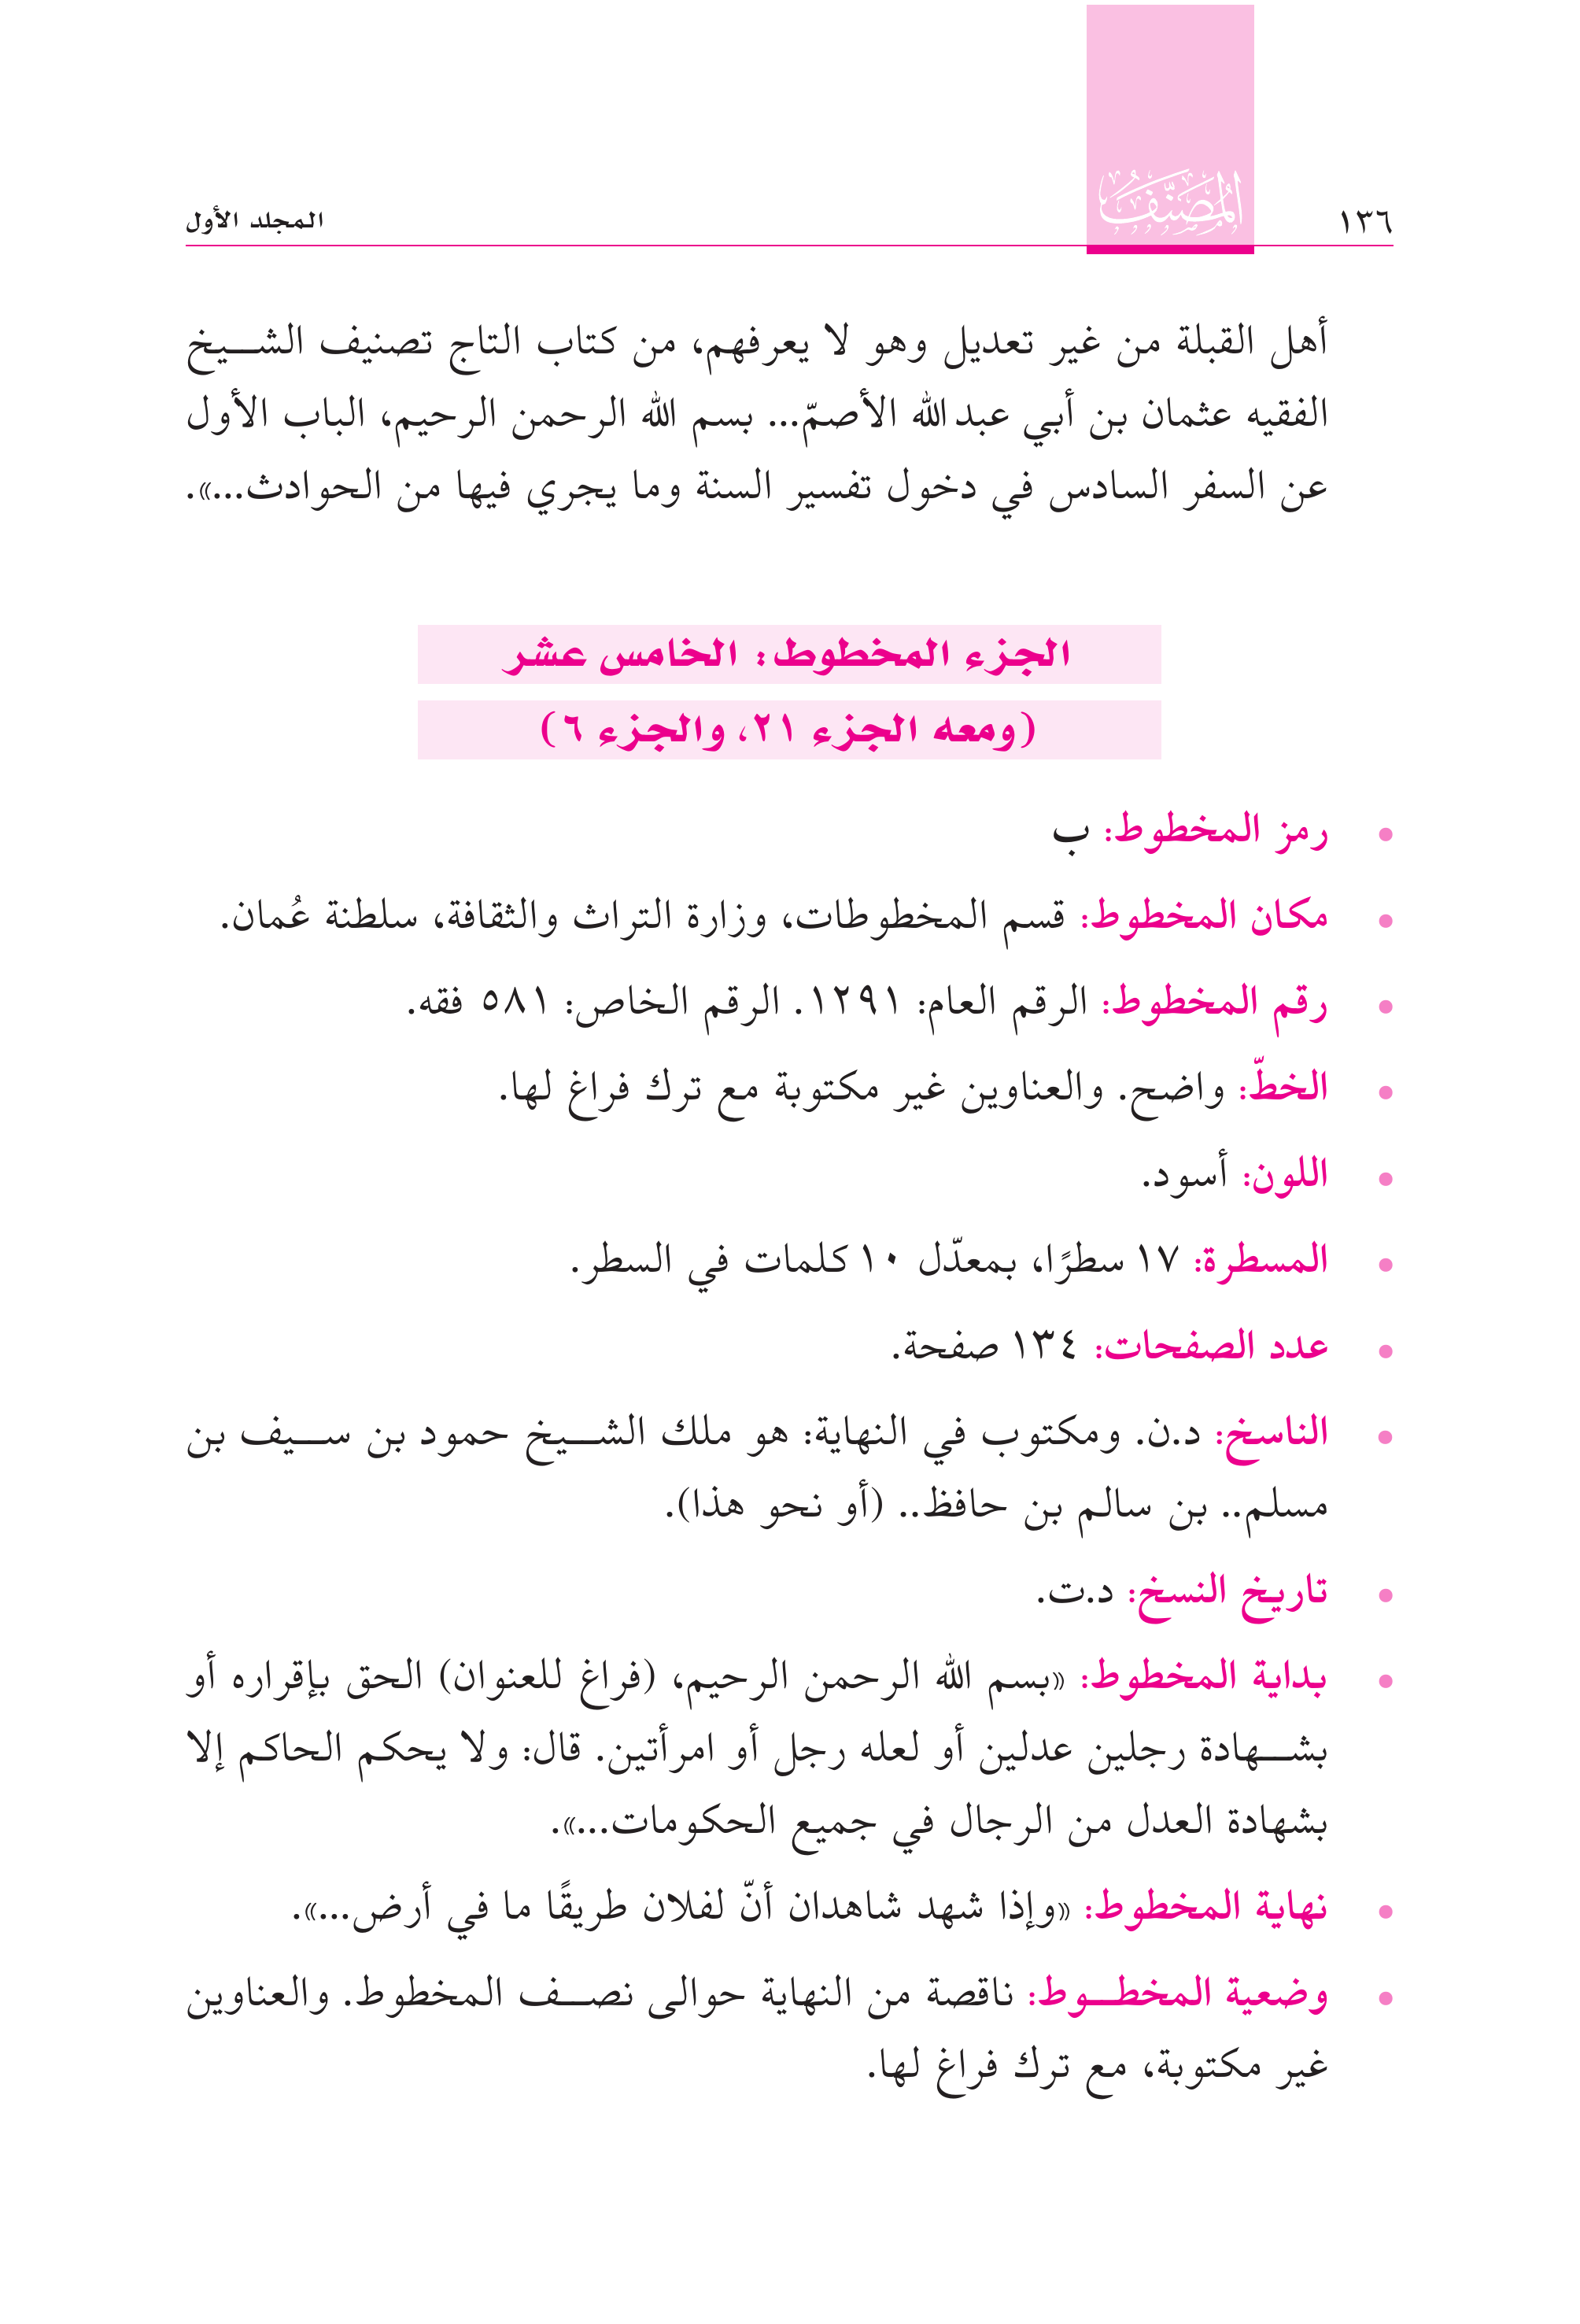 ١٣٦
المُصَنَّفُ
المجلد الأول
أهل القبلة من غير تعديل وهو لا يعرفهم، من كتاب التاج تصنيف الشـــيخ
الفقيه عثمان بن أبي عبد الله الأصمّ... بسم الله الرحمن الرحيم، الباب الأول
عن السفر السادس في دخول تفسير السنة وما يجري فيها من الحوادث...».
الجزء المخطوط: الخامس عشر
(ومعه الجزء ٢١، والجزء ٦)
• رمز المخطوط: ب
• مكان المخطوط: قسم المخطوطات، وزارة التراث والثقافة، سلطنة عُمان.
• رقم المخطوط: الرقم العام: ١٢٩١. الرقم الخاص: ٥٨١ فقه.
• الخطّ: واضح. والعناوين غير مكتوبة مع ترك فراغ لها.
• اللون: أسود.
• المسطرة: ١٧ سطرًا، بمعدّل ١٠ كلمات في السطر.
• عدد الصفحات: ١٣٤ صفحة.
• الناسخ: د.ن. ومكتوب في النهاية: هو ملك الشـــيخ حمود بن ســـيف بن
مسلم.. بن سالم بن حافظ.. (أو نحو هذا).
• تاريخ النسخ: د.ت.
• بداية المخطوط: «بسم الله الرحمن الرحيم، (فراغ للعنوان) الحق بإقراره أو
بشـــهادة رجلين عدلين أو لعله رجل أو امرأتين. قال: ولا يحكم الحاكم إلا
بشهادة العدل من الرجال في جميع الحكومات...».
• نهاية المخطوط: «وإذا شهد شاهدان أنّ لفلان طريقًا ما في أرض...».
• وضعية المخطـــوط: ناقصة من النهاية حوالى نصـــف المخطوط. والعناوين
غير مكتوبة، مع ترك فراغ لها.